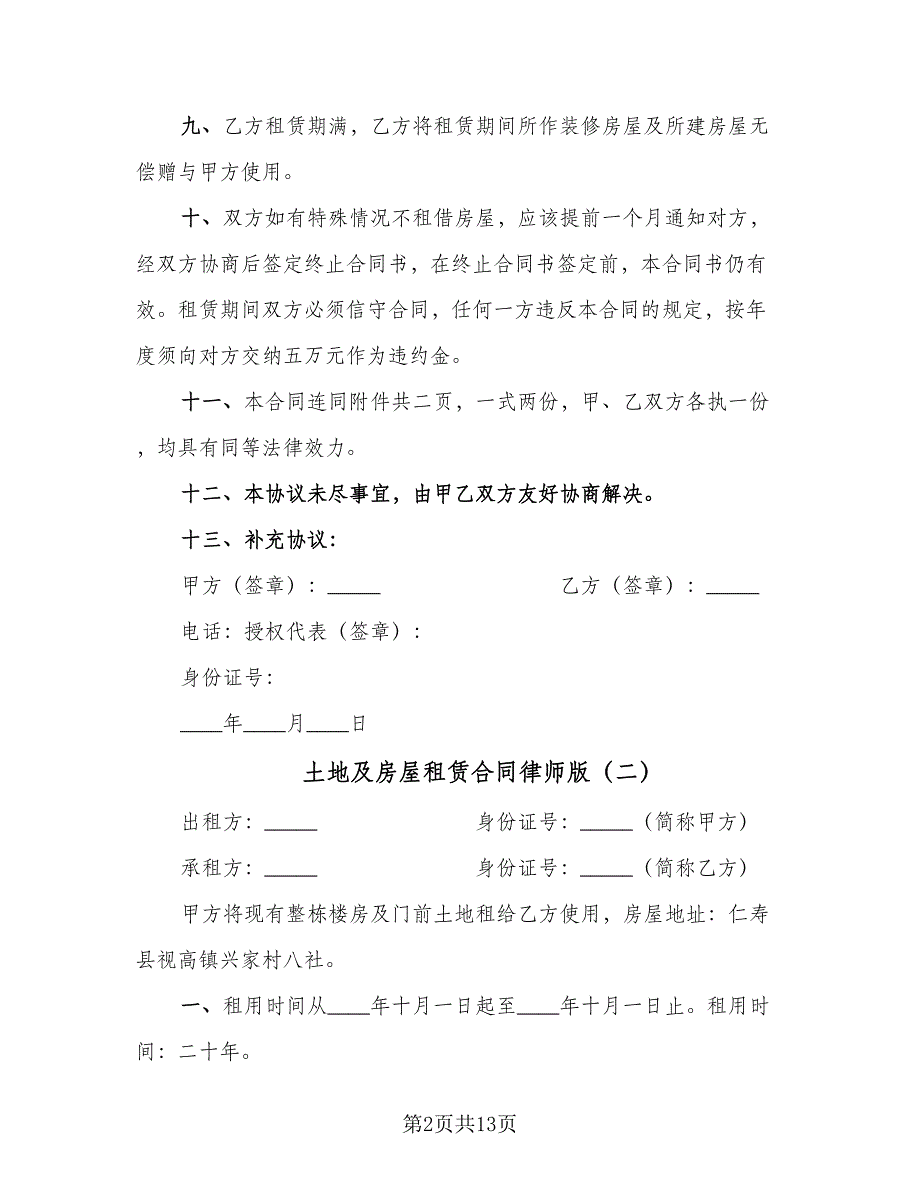 九、乙方租赁期满，乙方将租赁期间所作装修房屋及所建房屋无
偿赠与甲方使用。
十、双方如有特殊情况不租借房屋，应该提前一个月通知对方，
经双方协商后签定终止合同书，在终止合同书签定前，本合同书仍有
效。租赁期间双方必须信守合同，任何一方违反本合同的规定，按年
度须向对方交纳五万元作为违约金。
十一、本合同连同附件共二页，一式两份，甲、乙双方各执一份
，均具有同等法律效力。
十二、本协议未尽事宜，由甲乙双方友好协商解决。
十三、补充协议：
甲方（签章）：_____ 乙方（签章）：_____
电话：授权代表（签章）：
身份证号：
____年____月____日
土地及房屋租赁合同律师版（二）
出租方：_____ 身份证号：_____（简称甲方）
承租方：_____ 身份证号：_____（简称乙方）
甲方将现有整栋楼房及门前土地租给乙方使用，房屋地址：仁寿
县视高镇兴家村八社。
一、租用时间从____年十月一日起至____年十月一日止。租用时
间：二十年。
第2页共13页